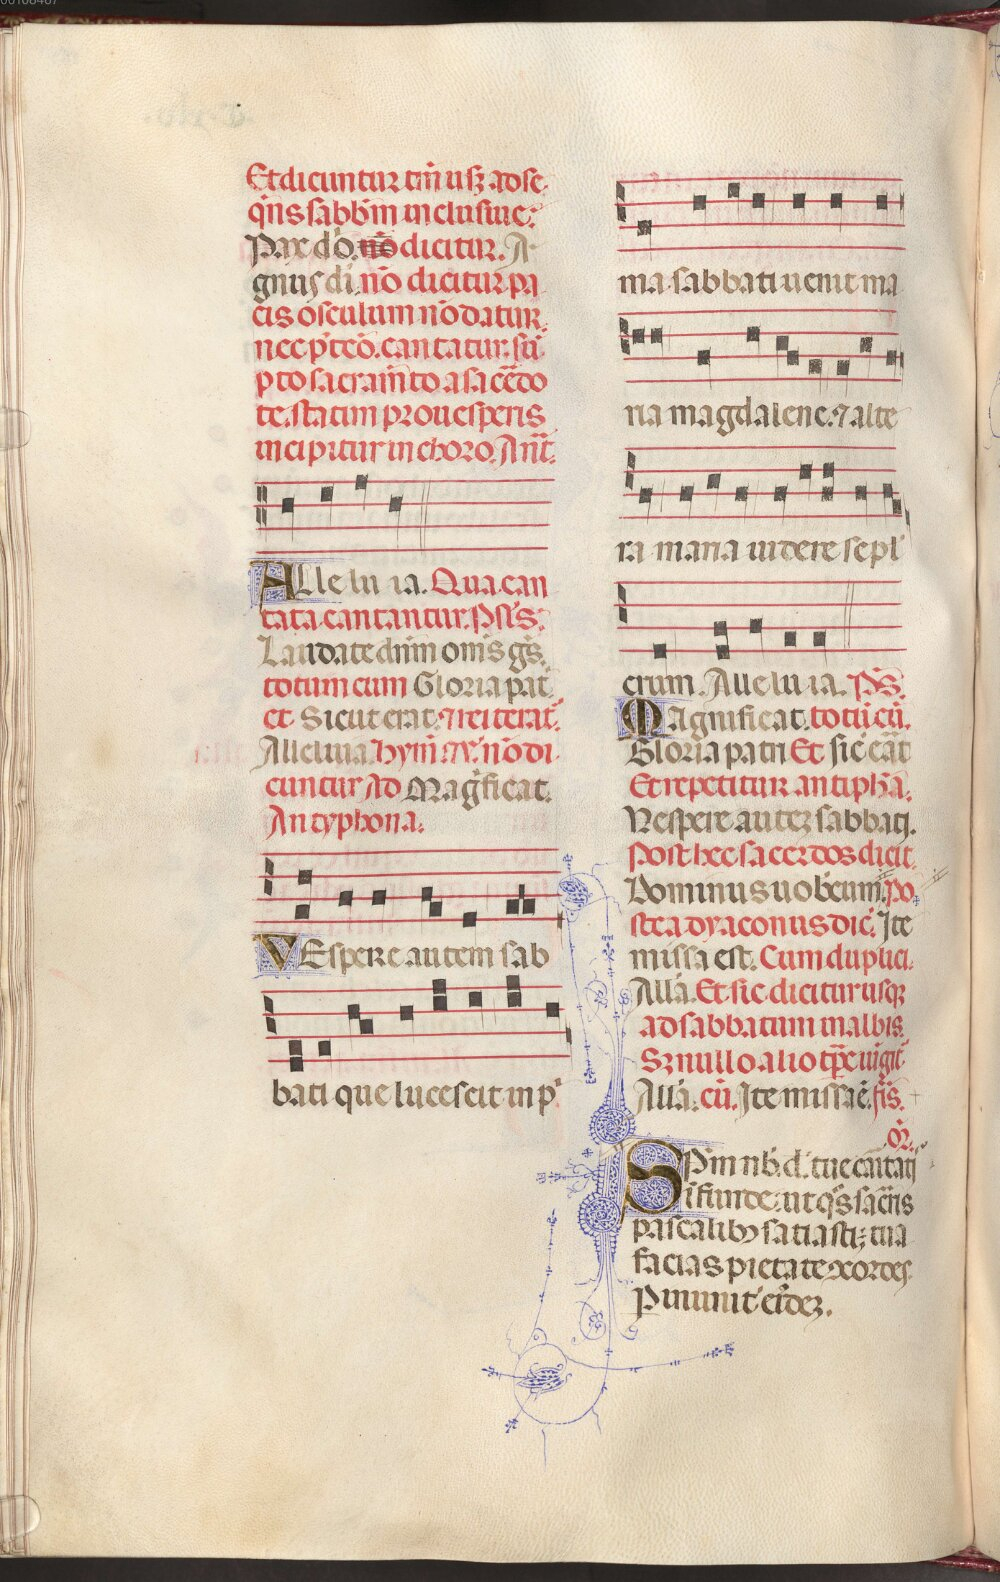 Et dicuntur tm̄ usq; ad se
qn̄s sabb̄m inclusiue:
Pax do. nō dicitur. A
gnus di. nō dicitur pa
cis osculum nō datur.
nec p̄ c̄eō. cantatur. s;
p̄to sacram̄to a sacēdo
te. statim pro uesperis
incipitur in choro. Añt.
Alle lu ia. Qua can
tata cantantur. Ps̄is.
Laudate dn̄m om̄s gs̄.
totum cum Gloria pat̄
et Sicut erat. ⁊ reiterat̄
Alleluia. hym̄. ⁊ ℣. nō di
cuntur Ad Magn̄ficat.
Antyphona.
VEspere autem sab
bati que lucescit in p
ma sabbati uenit ma
ria magdalene. ⁊ alte
ra maria uidere sepl̄
crum. Alle lu ia. Ps̄.
Magnificat. totū cū.
Gloria patri Et sic̄ eāt
Et repetitur antiphā.
Vespere autez sabbati.
Post hec sacerdos dicit
Dominus uobcum. Po
stea dyaconus dic̄. Ite
missa est. Cum duplici
Allā. Et sic dicitur usq;
ad sabbatum in albis.
Sz nullo alio tp̄e iūgit̄
Allā. cū. Ite missa ē. f̄is.
Or̄.
Spm̄ nb̄. d. tue cāitatis
ifunde: ut q̄s sacr̄is
pascalibȝ satiasti; tua
facias pietate xordes.
P in unit̄ eīdez.